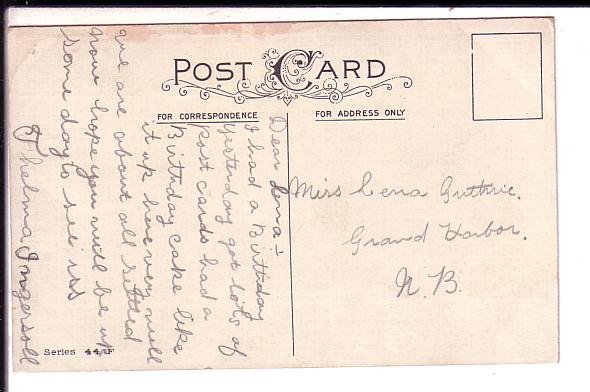 POST CARD
FOR CORRESPONDENCE
FOR ADDRESS ONLY
Dear Lena:-
I had a Birthday
yesterday got lots of
post cards had a
Birthday cake like
it up here very well
we are about all settled
now hope you will be up
some day to see us
Thelma Ingersoll
Miss Lena Guthrie.
Grand Harbor.
N.B.
Series 44 F